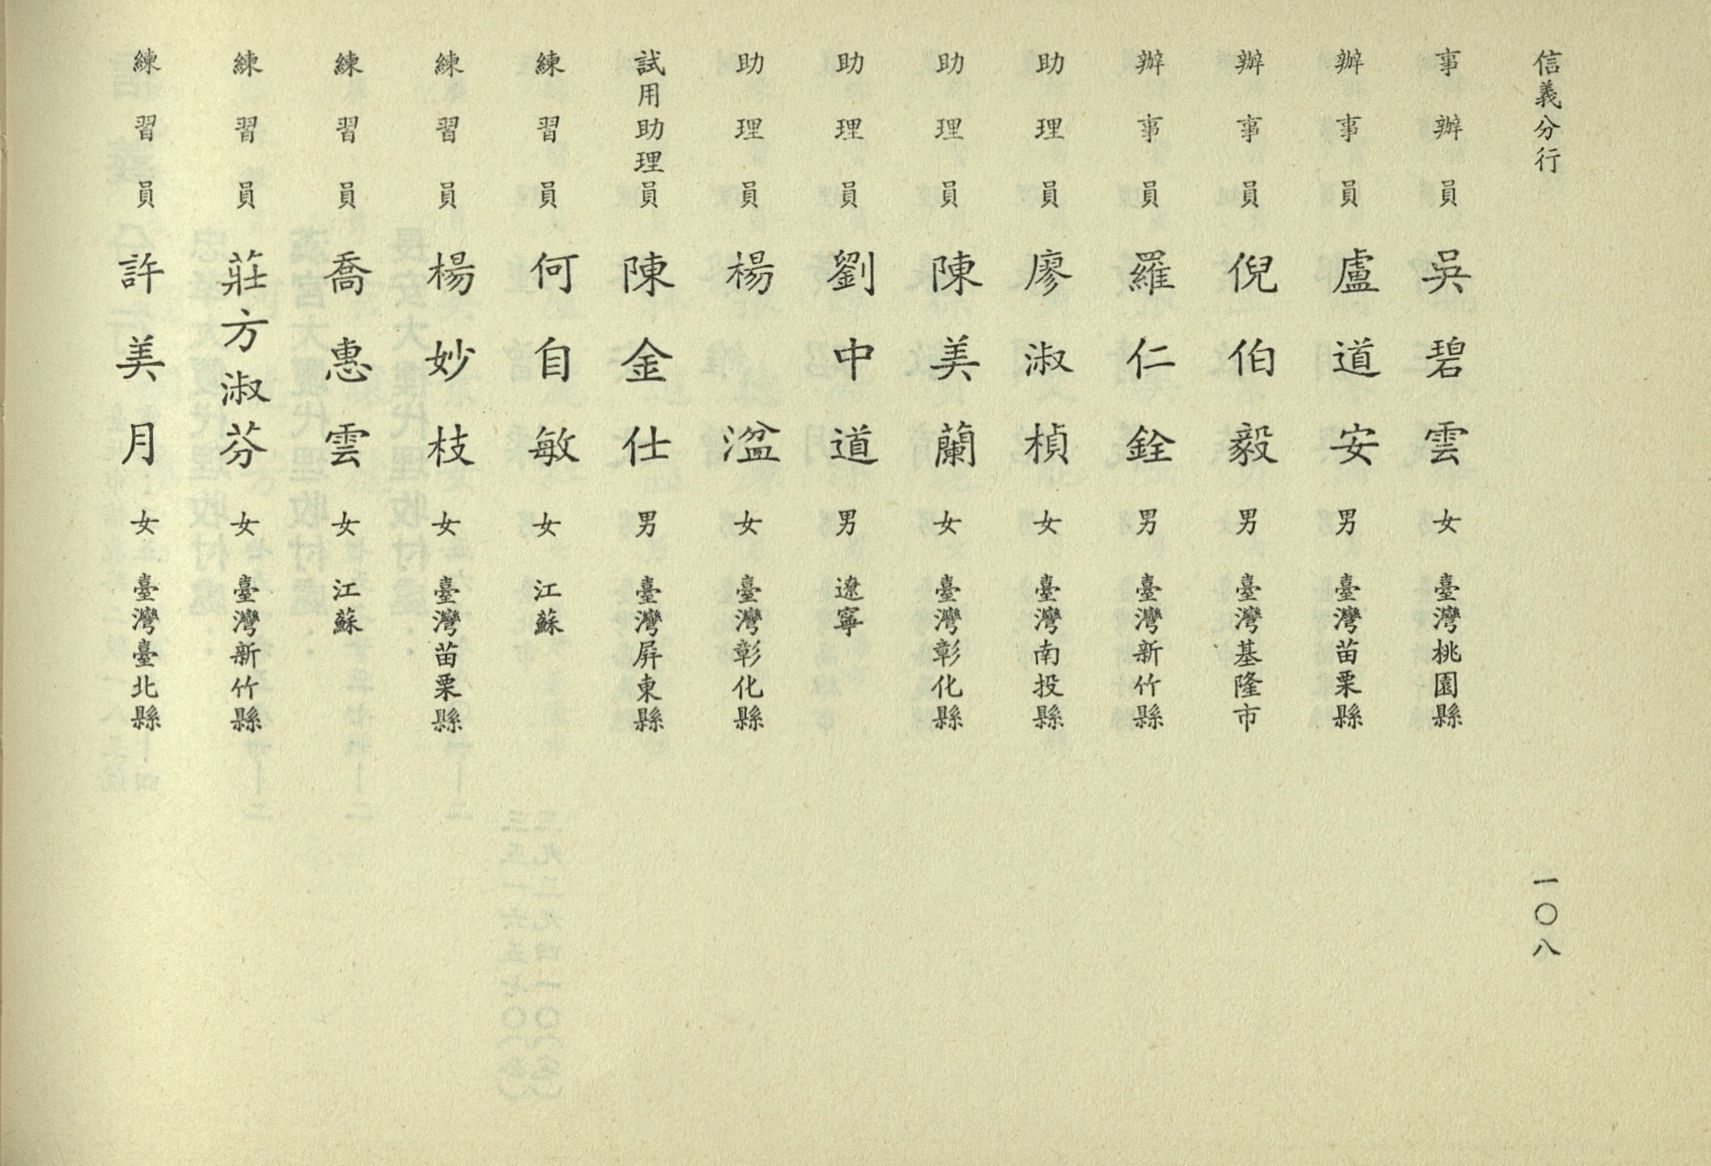 信義分行
一〇八
事辦員 吳碧雲 女 臺灣桃園縣
辦事員 盧道安 男 臺灣苗栗縣
辦事員 倪伯毅 男 臺灣基隆市
辦事員 羅仁銓 男 臺灣新竹縣
助理員 廖淑楨 女 臺灣南投縣
助理員 陳美蘭 女 臺灣彰化縣
助理員 劉中道 男 遼寧
助理員 楊溢 女 臺灣彰化縣
試用助理員 陳金仕 男 臺灣屏東縣
練習員 何自敏 女 江蘇
練習員 楊妙枝 女 臺灣苗栗縣
練習員 喬惠雲 女 江蘇
練習員 莊方淑芬 女 臺灣新竹縣
練習員 許美月 女 臺灣臺北縣